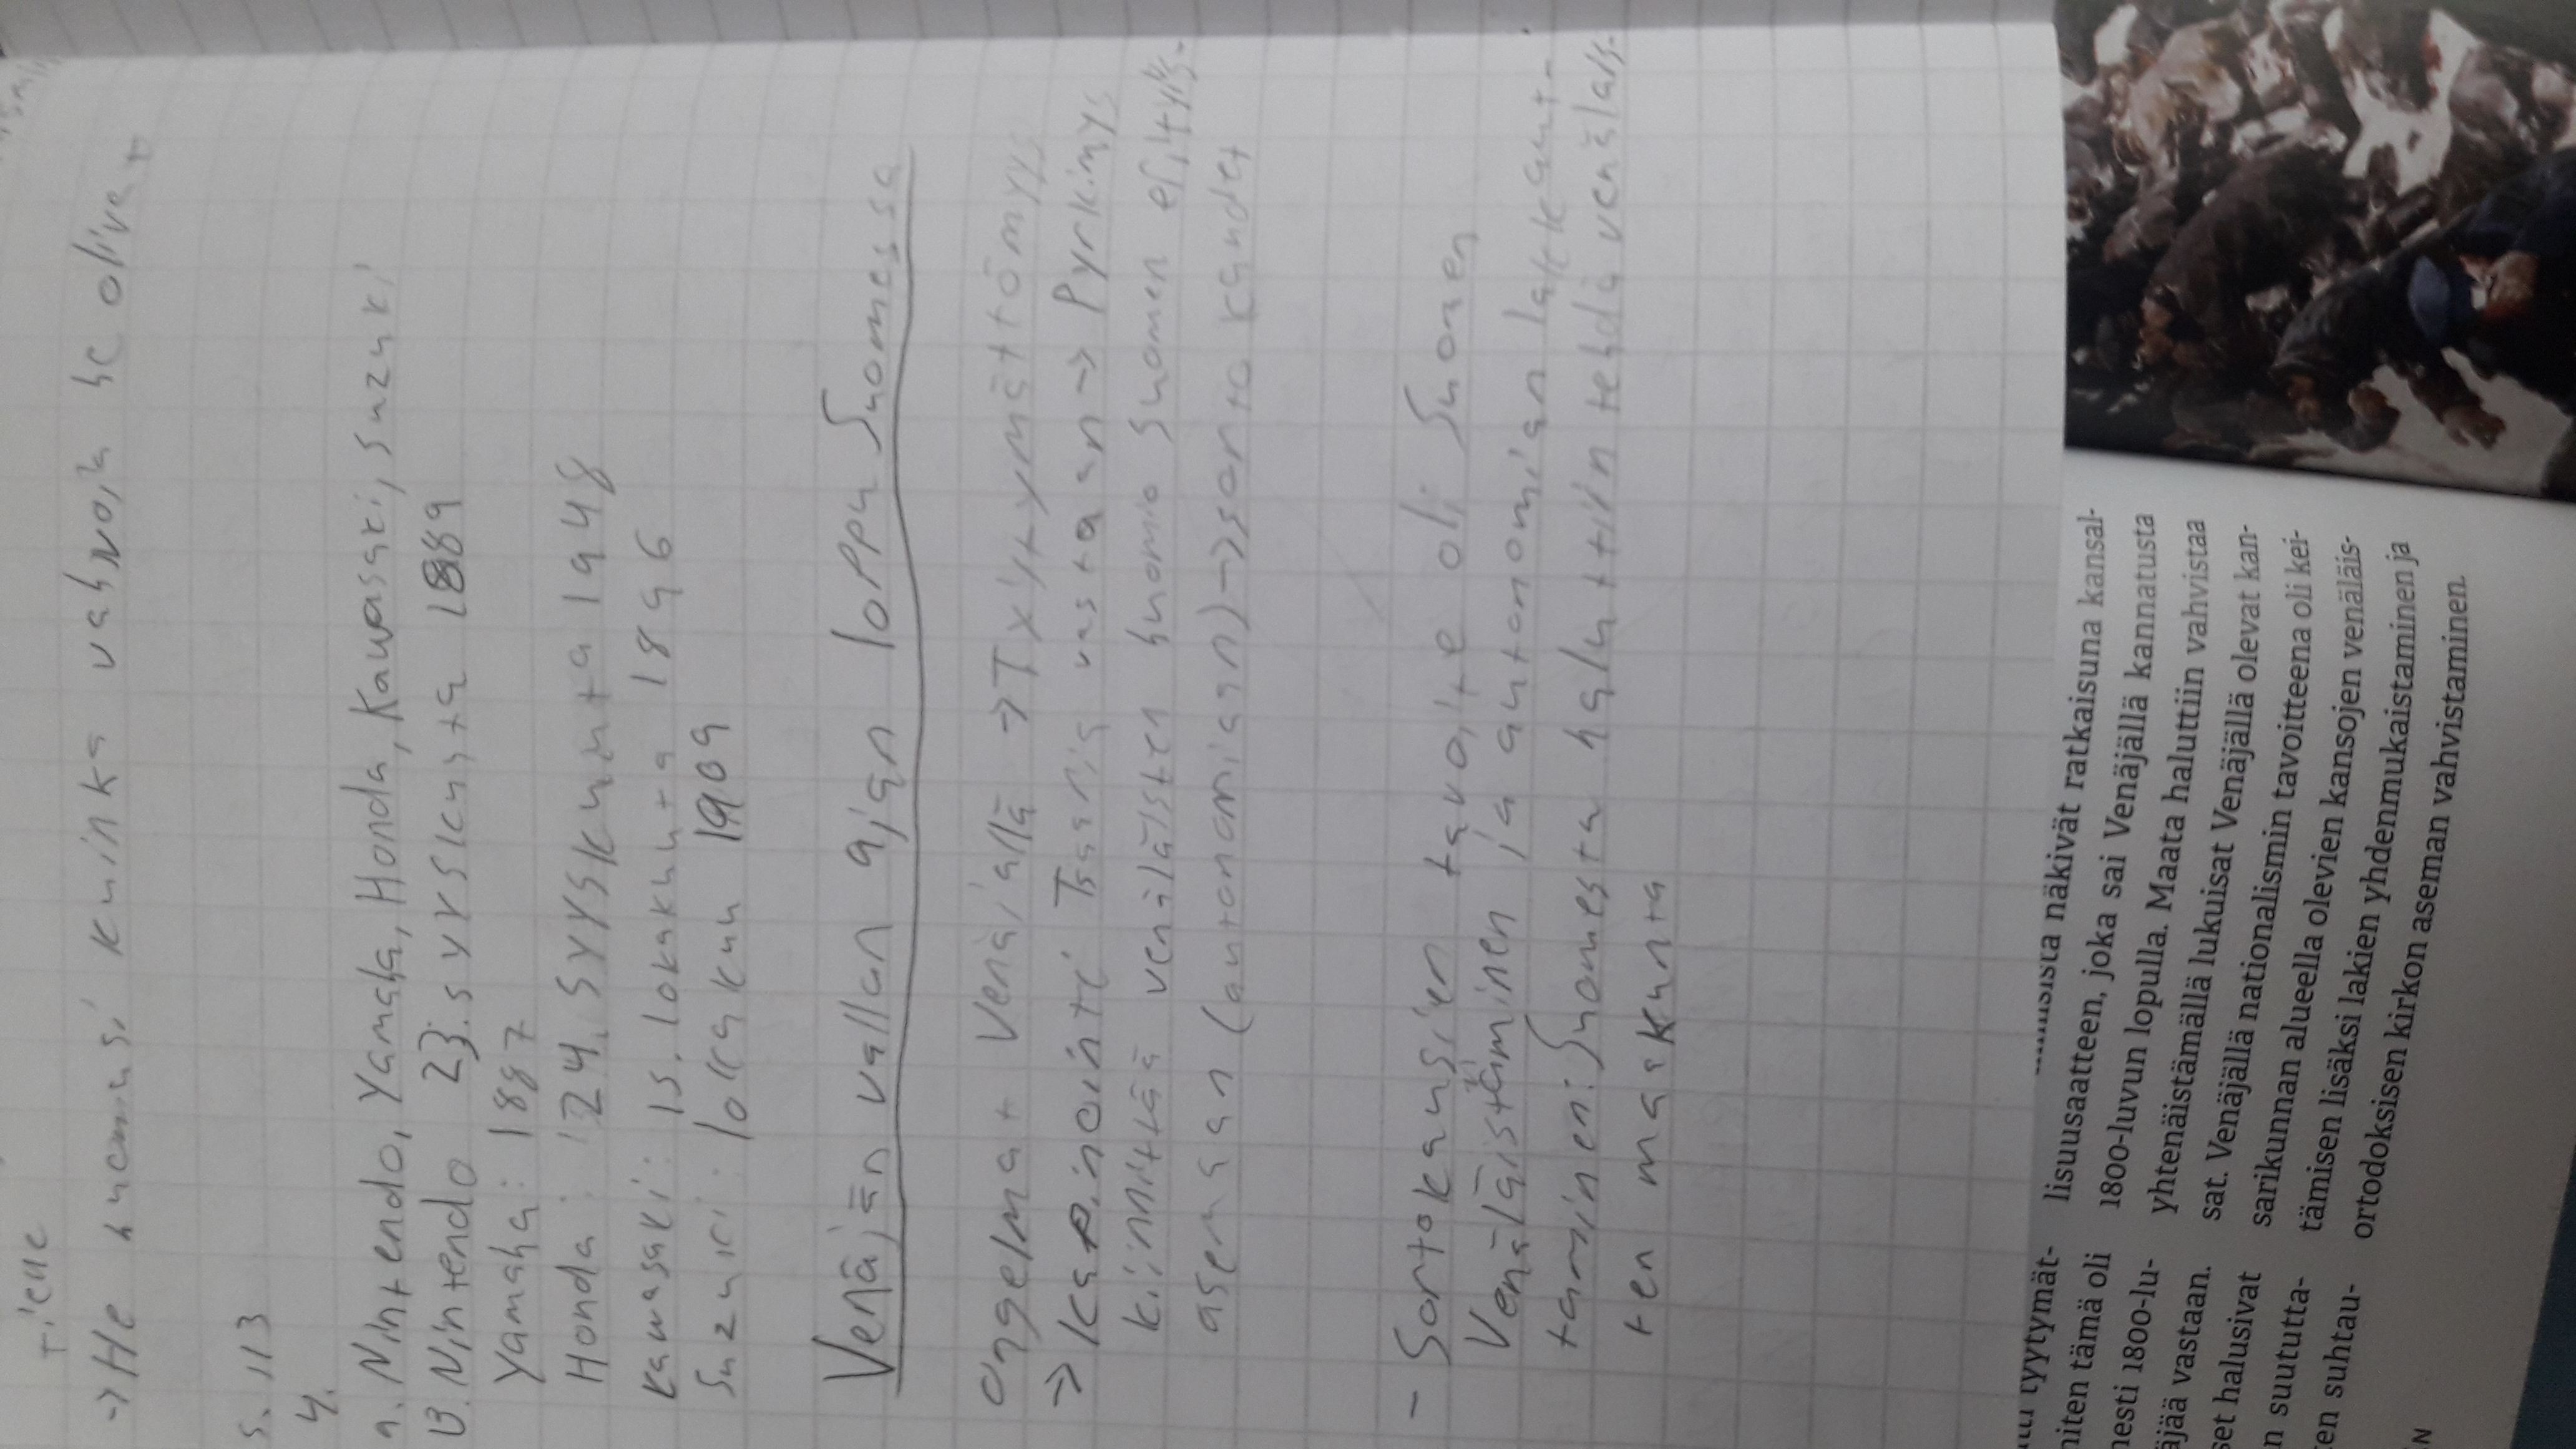 tielle
→ He huomasi kuinka vahvoja he olivat
s. 113
4.
a. Nintendo, Yamaha, Honda, Kawasaki, Suzuki
B. Nintendo 23. syyskuuta 1889
Yamaha: 1887
Honda: 24. syyskuuta 1948
Kawasaki: 15. lokakuuta 1896
Suzuki: lokakuu 1909
Venäjän vallan ajan loppu Suomessa
Ongelmat Venäjällä → Tyytymättömyys
→ kapinointi Tsaaria vastaan → Pyrkimys
kiinnittää venäläisten huomio Suomen erityis-
asemaan (autonomiaan) → sortokaudet
- Sortokausien tavoite oli Suomen
Venäläistäminen ja autonomian lakkaut-
taminen: Suomesta haluttiin tehdä venäläis-
ten maakunta
tyytymät-
miten tämä oli
nesti 1800-lu-
äjää vastaan.
set halusivat
n suututta-
ten suhtau-
N
näkivät ratkaisuna kansal-
lisuusaatteen, joka sai Venäjällä kannatusta
1800-luvun lopulla. Maata haluttiin vahvistaa
yhtenäistämällä lukuisat Venäjällä olevat kan-
sat. Venäjällä nationalismin tavoitteena oli kei-
sarikunnan alueella olevien kansojen venäläis-
tämisen lisäksi lakien yhdenmukaistaminen ja
ortodoksisen kirkon aseman vahvistaminen.